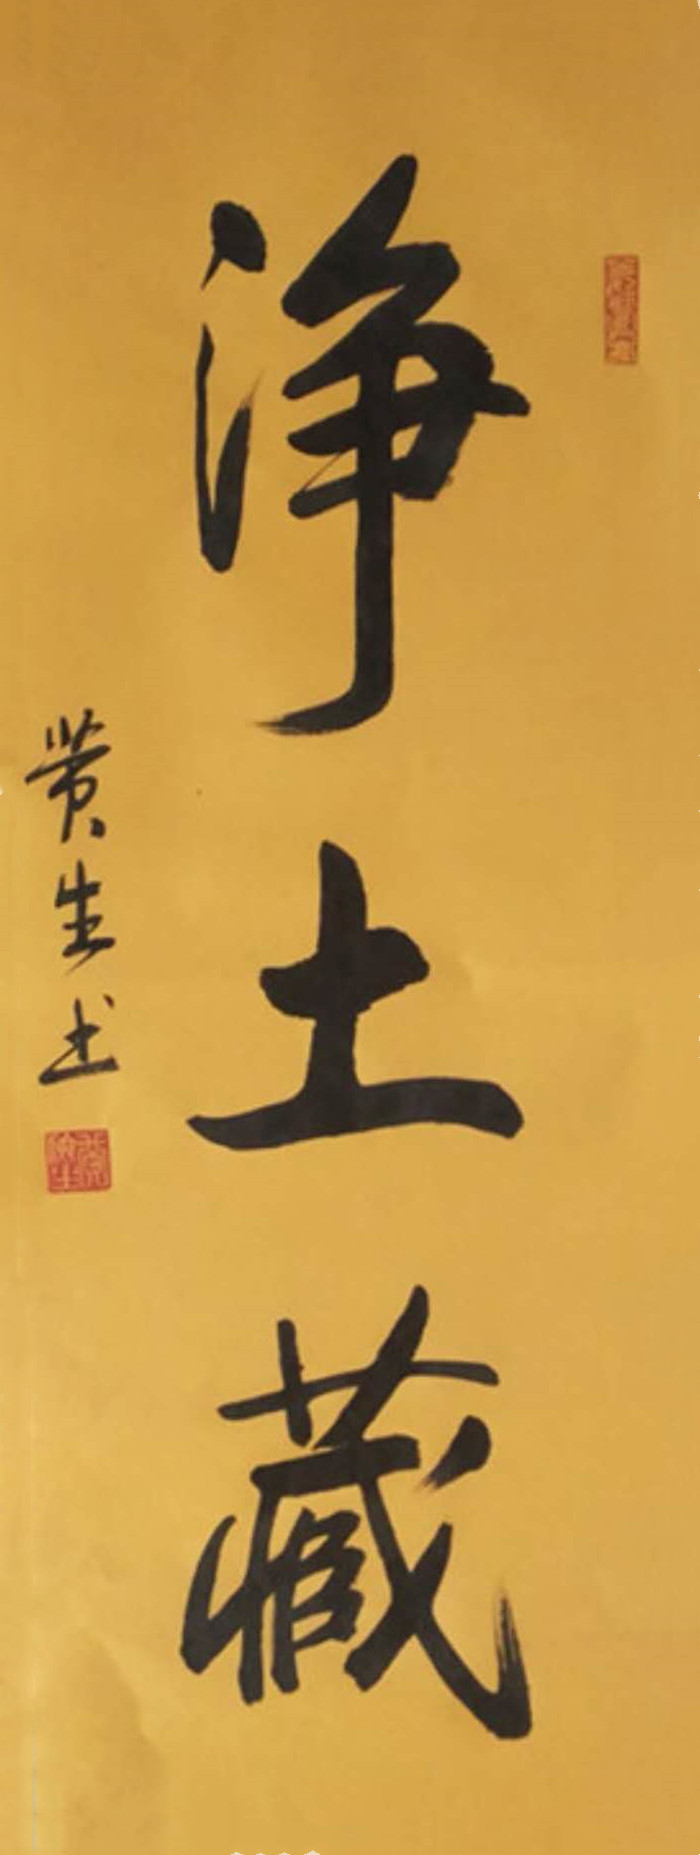 净土藏
黄生书